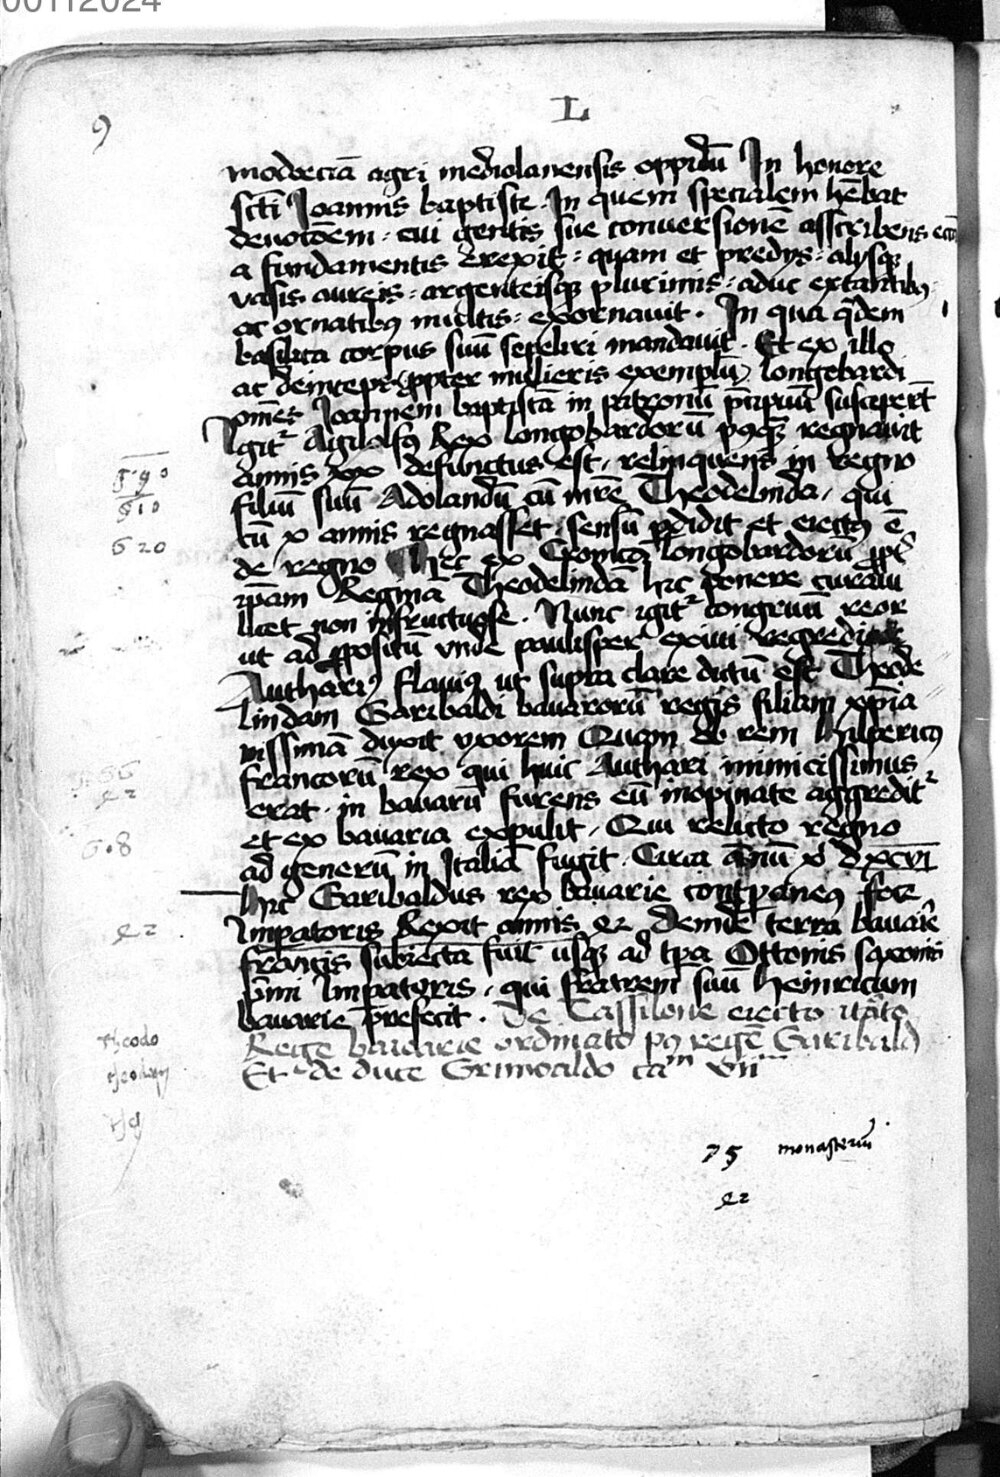 00112024
9
L
modoeciā agri mediolanensis oppidū In honore
sc̄ti Joannis baptiste. In quem specialem hēbat
deuotōem: cui gentis sue conuersionē asscribens ecc̄
a fundamentis erexit: quam et predys: alysqꝫ
vasis aureis: argenteisqꝫ plurimis: aduc extantibꝰ
ac ornatibꝰ multis: exornauit. In qua q̄dem
basilica corpus suū sepeliri mandauit. Et ex illo
ac deinceps ꝓpter mulieris exemplū longobardi
om̄es Joannem baptistā in patronū p̄cipuū susceper̄t
Igitᷣ Agilolfꝰ Rex longobardorū pꝰqꝫ regnauit
annis xxv defunctus est, relinquens in regno
filiū suū Adolandū cū mr̄e Theodelinda, qui
cū x annis regnasset sensū ꝑdidit et eiectꝰ ē
de regno Hec ex Cronica longobardorū ꝓpt̄
ip̄am Regina Theodelindā hic ponere curaui
licet non infructuose. Nunc igitᷣ congruū reor
ut ad ꝓpositū vnde paulisper exiui regrediar
Autharꝰ flauiꝰ ut supra clare dictū est Theode
lindam Garibaldi bauarorū regis filiam xp̄ia
nissimā duxit vxorem Quam ob rem hilpericꝰ
francorū rex qui huic Authari inimicissimus
erat. in bauarū furens eū inopinate aggreditᷣ
et ex bauaria expulit, Qui relicto regno
ad generū in Italiā fugit. Circa ānū xi dxcvi
hic Garibaldus rex bauarie contꝑaneꝰ foce
Impatoris Rexit annis 42 deinde terra bauaīe
francis subiecta fuit usqꝫ ad tp̄a Ottonis saxonis
p̄mi Impatoris, qui fratrem suū heinricum
bauarie p̄fecit. De Tassilone eiecto
Rege bauarie ordinato pꝰ regē Garibald
Et de duce Grimoaldo caᵐ vii
590
610
620
42
608
42
theodo
75 monasteriū
42